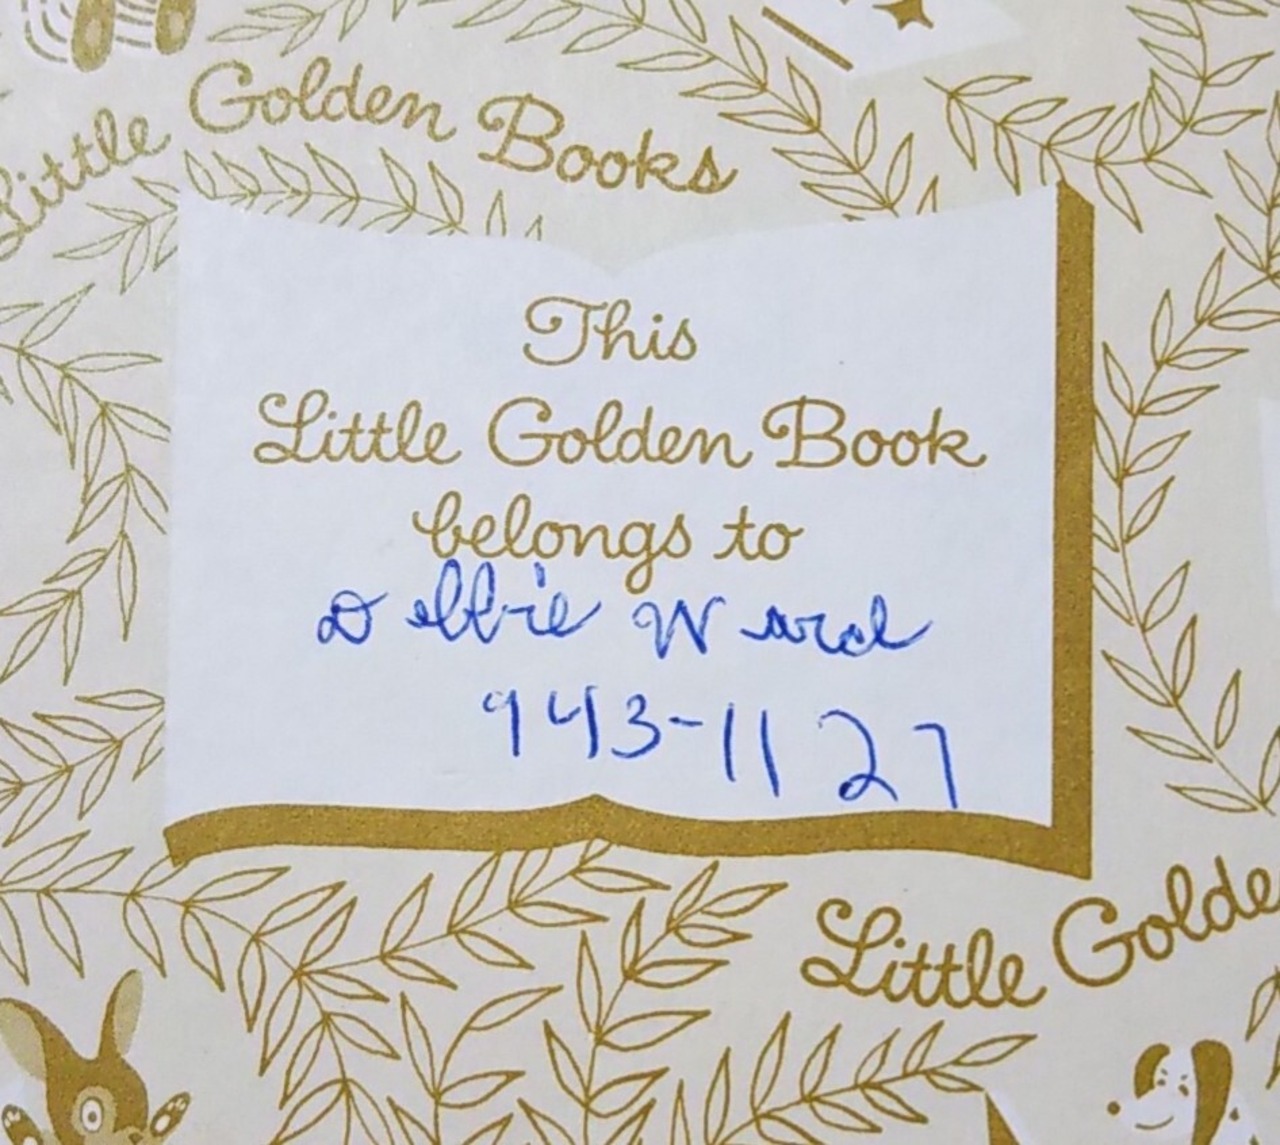 Little Golden Books
This
Little Golden Book
belongs to
Debbie Ward
943-1127
Little Golde